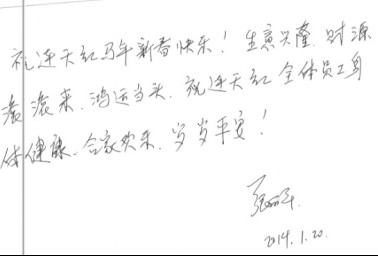 祝连天红马年新春快乐！生意兴隆、财源
滚滚来、鸿运当头、祝连天红全体员工身
体健康、合家欢乐、岁岁平安！
2014.1.20.